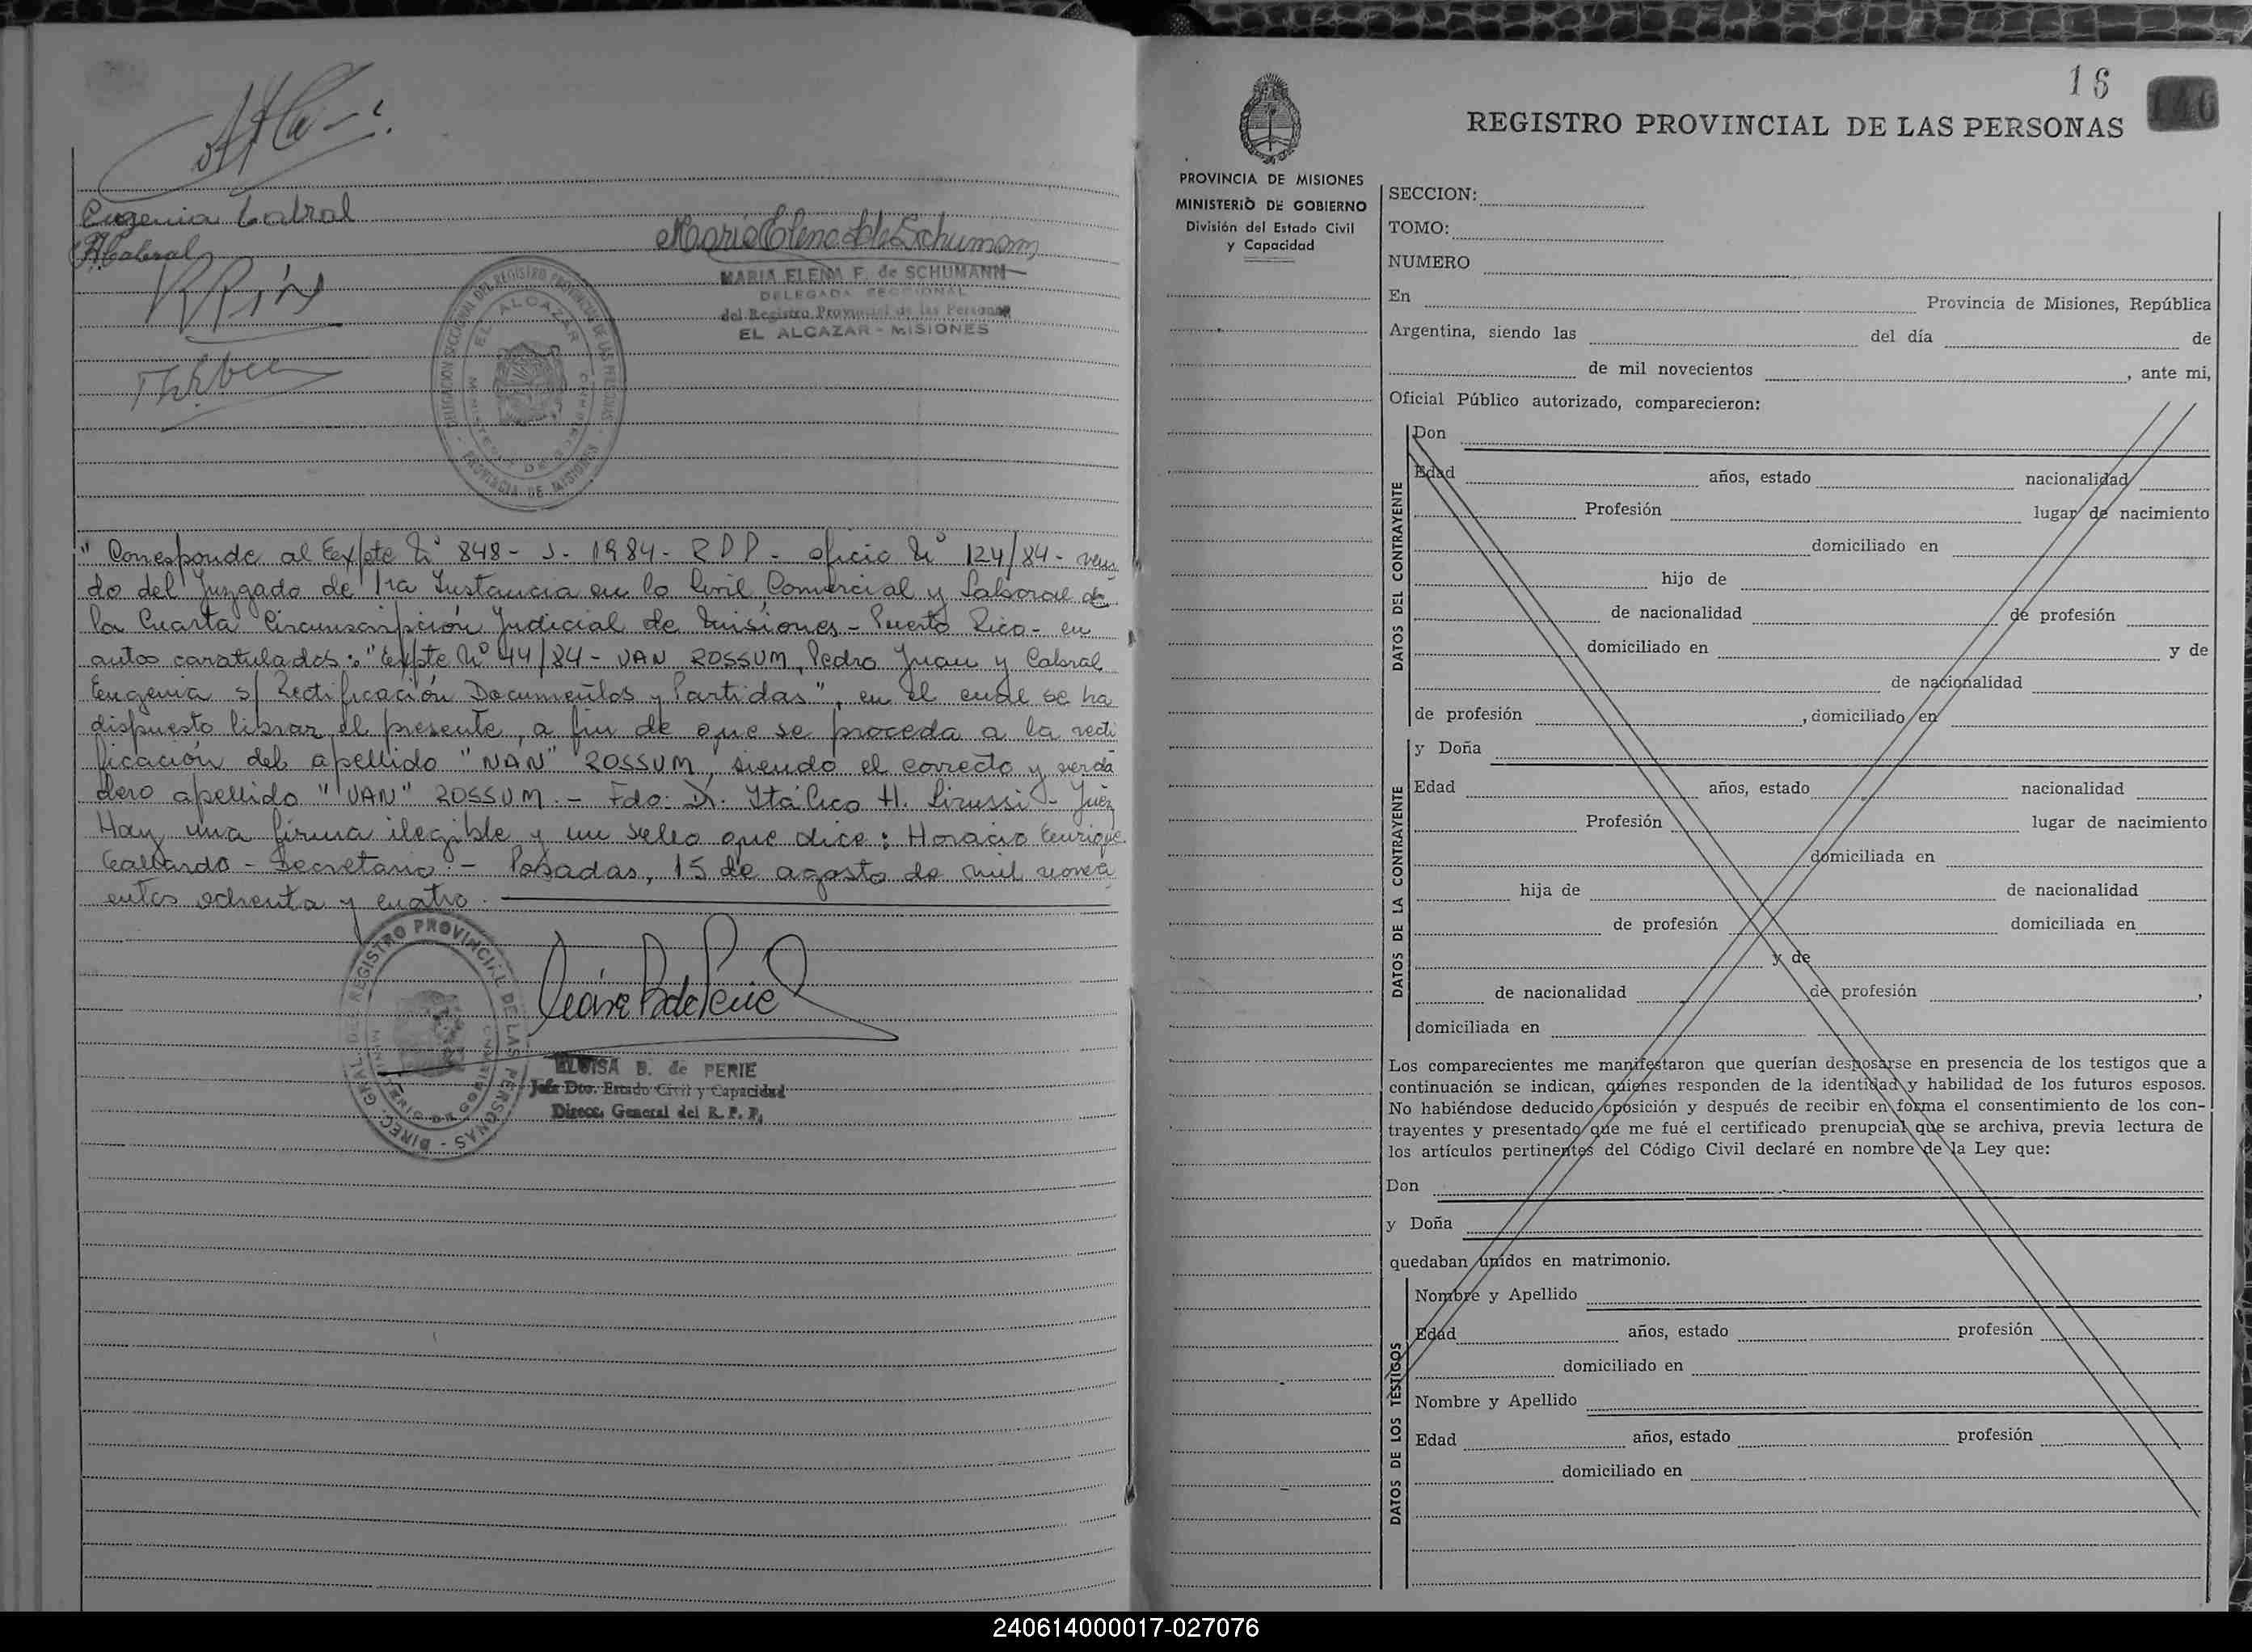 Eugenia Cabral
ACabral
Maria Elena F. de Schumann
MARIA ELENA F. de SCHUMANN
DELEGADA SECCIONAL
del Registro Provincial de las Personas
EL ALCAZAR - MISIONES
DELEGACION SECCIONAL DEL REGISTRO PROVINCIAL DE LAS PERSONAS
EL ALCAZAR
PROVINCIA DE MISIONES
"Corresponde al Eexpte Nº 848 - J - 1984 - RPP - oficio Nº 124/84 - veni
do del Juzgado de 1ra Instancia en lo Civil, Comercial y Laboral de
la Cuarta Circunscripción Judicial de Misiones - Puerto Rico - en
autos caratulados: "Expte Nº 44/84 - VAN ROSSUM, Pedro Juan y Cabral
Eugenia s/ Rectificación Documentos y Partidas", en el cual se ha
dispuesto librar el presente, a fin de que se proceda a la recti
ficación del apellido "NAN" ROSSUM, siendo el correcto y verda
dero apellido "VAN" ROSSUM. - Fdo: Dr. Itálico H. Pirussi - Juez
Hay una firma ilegible y un sello que dice: Horacio Enrique
Gallardo - Secretario. - Posadas, 15 de agosto de mil noveci
entos ochenta y cuatro.
DIREC. GRAL. DEL REGISTRO PROVINCIAL DE LAS PERSONAS
ELOISA B. de PERIE
Jefe Dto. Estado Civil y Capacidad
Direcc. General del R. P. P.
16
146
REGISTRO PROVINCIAL DE LAS PERSONAS
PROVINCIA DE MISIONES
MINISTERIO DE GOBIERNO
División del Estado Civil
y Capacidad
SECCION:
TOMO:
NUMERO
En Provincia de Misiones, República
Argentina, siendo las del día de
de mil novecientos , ante mi,
Oficial Público autorizado, comparecieron:
DATOS DEL CONTRAYENTE
Don
Edad años, estado nacionalidad
Profesión lugar de nacimiento
domiciliado en
hijo de
de nacionalidad de profesión
domiciliado en y de
de nacionalidad
de profesión , domiciliado en
DATOS DE LA CONTRAYENTE
y Doña
Edad años, estado nacionalidad
Profesión lugar de nacimiento
domiciliada en
hija de de nacionalidad
de profesión domiciliada en
y de
de nacionalidad de profesión ,
domiciliada en
Los comparecientes me manifestaron que querían desposarse en presencia de los testigos que a
continuación se indican, quienes responden de la identidad y habilidad de los futuros esposos.
No habiéndose deducido oposición y después de recibir en forma el consentimiento de los con-
trayentes y presentado que me fué el certificado prenupcial que se archiva, previa lectura de
los artículos pertinentes del Código Civil declaré en nombre de la Ley que:
Don
y Doña
quedaban unidos en matrimonio.
DATOS DE LOS TESTIGOS
Nombre y Apellido
Edad años, estado profesión
domiciliado en
Nombre y Apellido
Edad años, estado profesión
domiciliado en
240614000017-027076